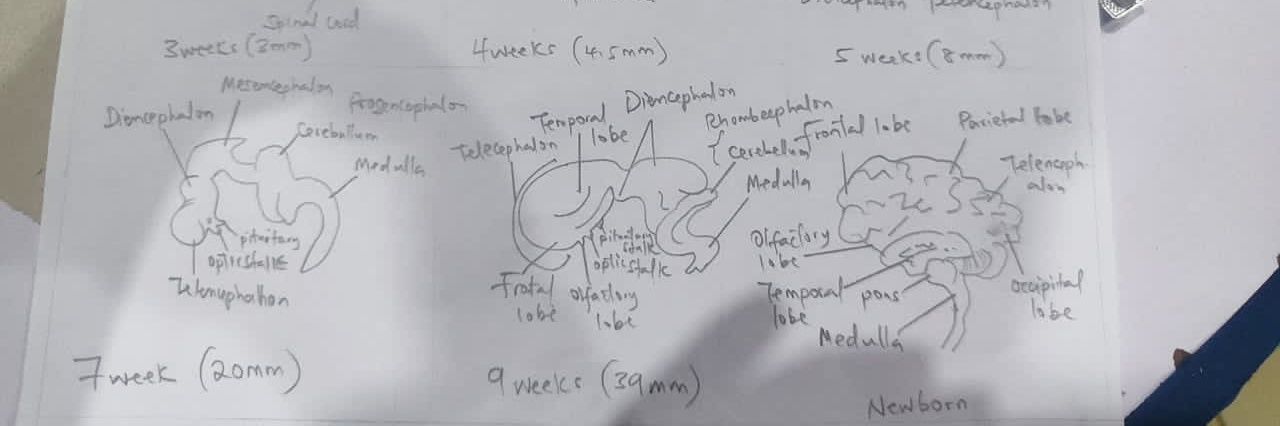 Spinal cord
3weeks (3mm)
4weeks (4.5mm)
5 weeks (8mm)
Mesencephalon
Diencephalon
Prosencephalon
Cerebellum
Medulla
pituitary
opticstalk
7 week (20mm)
Diencephalon
Temporal
lobe
Telecephalon
Rhombephalon
Cerebellum
Medulla
pituitary
stalk
opticstalk
Frotal
lobe
olfactory
lobe
9 weeks (39mm)
Frontal lobe
Parietal lobe
Telenceph-
alon
Olfactory
lobe
Temporal
lobe
pons
Medulla
occipital
lobe
Newborn